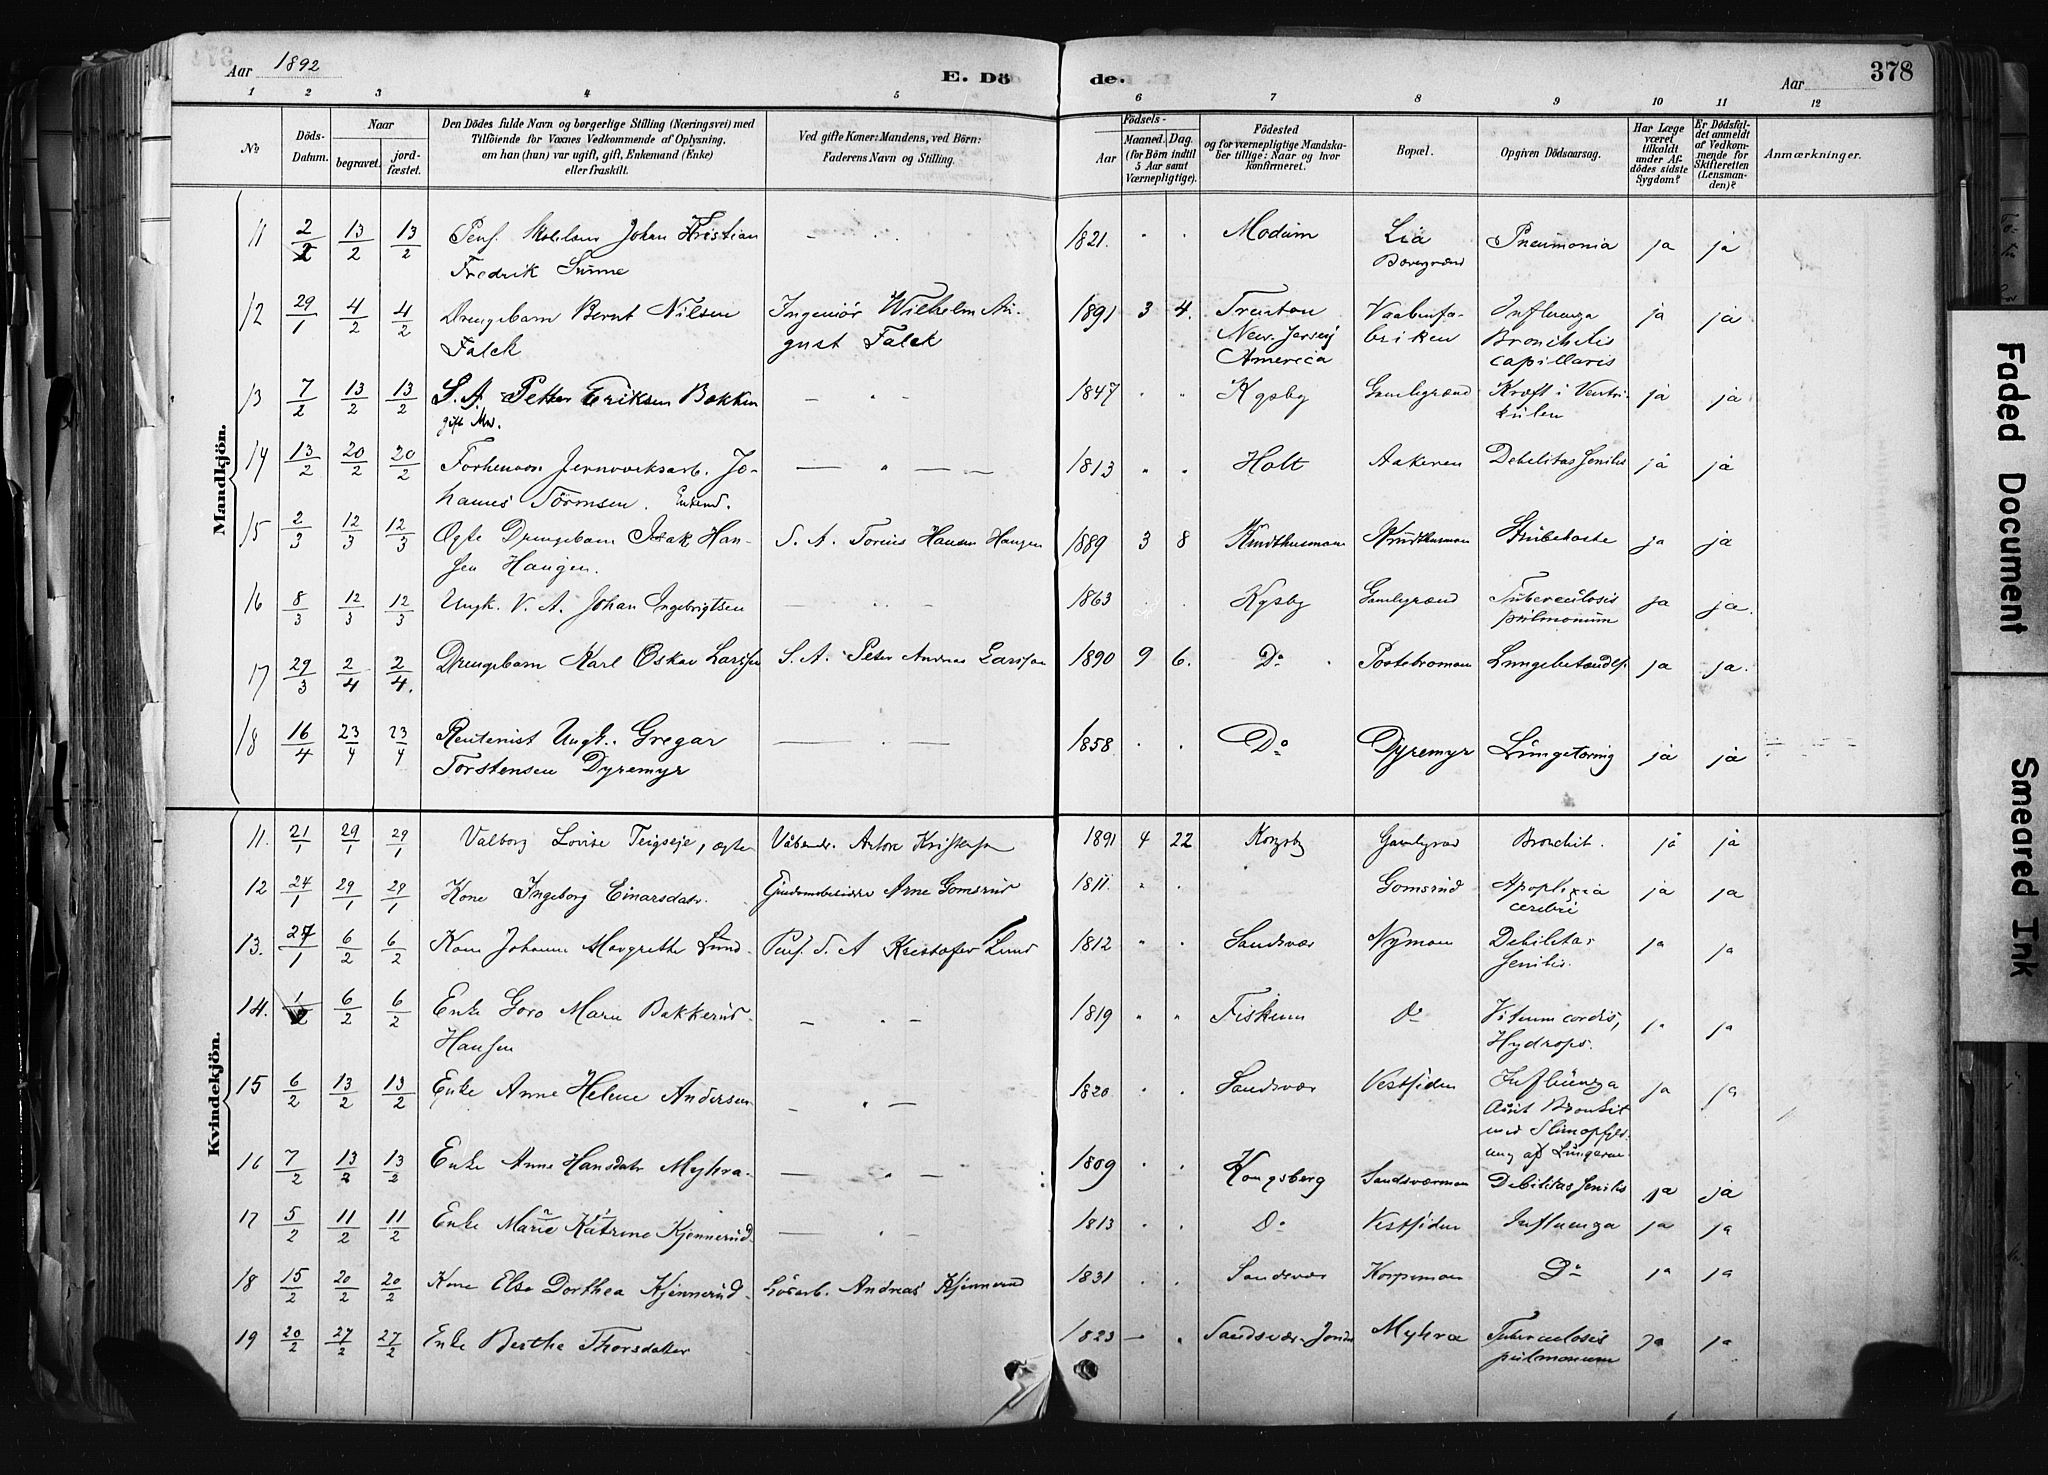 Aar 1892 E. Döde. Aar 378
1 2 3 4 5 6 7 8 9 10 11 12
№ Döds-Datum. Naar begravet. jordfæstet. Den Dödes fulde Navn og borgerlige Stilling (Næringsvei) med Tilföiende for Voxnes Vedkommende af Oplysning, om han (hun) var ugift, gift, Enkemand (Enke) eller fraskilt. Ved gifte Koner: Mandens, ved Börn: Faderens Navn og Stilling. Födsels- Aar Maaned. Dag. (for Börn indtil 5 Aar samt Værnepligtige). Födested og for værnepligtige Mandskaber tillige: Naar og hvor konfirmeret. Bopæl. Opgiven Dödsaarsag. Har Læge været tilkaldt under Afdödes sidste Sygdom? Er Dödsfaldet anmeldt af Vedkommende for Skifteretten (Lensmanden)? Anmærkninger.
Mandkjön.
11 2/2 13/2 13/2 Pens. Johan Kristian Fredrik Sinne — " — 1821. " " Modum Lia Pneumonia ja ja
12 29/1 4/2 4/2 Drengebarn Bernt Nilsen Falck Ingeniör Wilhelm August Falck 1891 3 4. Trenton New-Jersey America Vaabenfabriken Influenza Bronchitis capillaris ja ja
13 7/2 13/2 13/2 S. A. Petter Eriksen Bakken gift Md. — " — 1847 " " Kgsby Gamlegrænd Kræft i Ventrikülen ja ja
14 13/2 20/2 20/2 Forhenvær. Jernverksarb. Johannes Enkemd. — " — 1813 " " Holt Aakeren Debilitas senilis ja ja
15 2/3 12/3 12/3 Ægte Drengebarn Isak Hansen Haugen. S. A. Torius Hansen Haugen 1889 3 8 Strübehoste ja ja
16 8/3 12/3 12/3 Ungk. V. A. Johan Ingebrigtsen — — 1863 " " Kgsby Gamlegrænd Tüberculosis pülmonüm ja ja.
17 29/3 2/4 2/4. Drengebarn Karl Oskar Larssen S. A. Peter Andreas Larssen 1890 9 6. Do Lungebetændels. ja ja.
18 16/4 23/4 23/4 Rentenist Ungk. Gregar Torstensen Dyremyr — " — 1858 " " Do Dyremyr Lüngetæring ja ja
Kvindekjön.
11. 21/1 29/1 29/1 Valborg Lovise Teigseje, ægte Våbenar. Anton Kristensen 1891 4 22 Kongsby Gamlegrænd Bronchit. ja ja
12 24/1 29/1 29/1 Kone Ingeborg Einarsdatr. Eiendomsbesidder Arne Gomsrüd 1811. " " Gomsrüd Apoplexia cerebri ja ja
13. 27/1 6/2 6/2 Kone Johanne Margrethe Lund. Pens. S. A Kristofer Lund 1812 " " Sandsvær Nymoen Debilitas senilis. ja ja
14. 1/2 6/2 6/2 Enke Goro Marie Bakkerüd Hansen — " — 1819 " " Fiskum Do Vitium cordis, Hydrops. ja ja
15 6/2 13/2 13/2 Enke Anne Helene Andersen — " — 1820 " " Sandsvær Vestsiden Influenza Aküt Bronkit med Slimopfyldning af Lüngerne. ja ja
16 7/2 13/2 13/2 Enke Anne Hansdatr Myhra — " — 1809 " " Kongsberg Sandsværmoen Debilitas senilis ja ja
17 5/2 11/2 11/2 Enke Marie Katrine Kjennerüd. — " — 1813 " " Do Vestsiden Influenza ja ja
18 15/2 20/2 20/2 Kone Else Dorthea Kjennerüd. Lösarb. Andreas Kjennerud 1831 " " Sandsvær Korpemoen Do ja ja
19 20/2 27/2 27/2 Enke Berthe Thorsdatter 1823 — " Sandsvær-Jonds Myhra Tuberculosis pulmonum ja ja
Faded Document
Smeared Ink